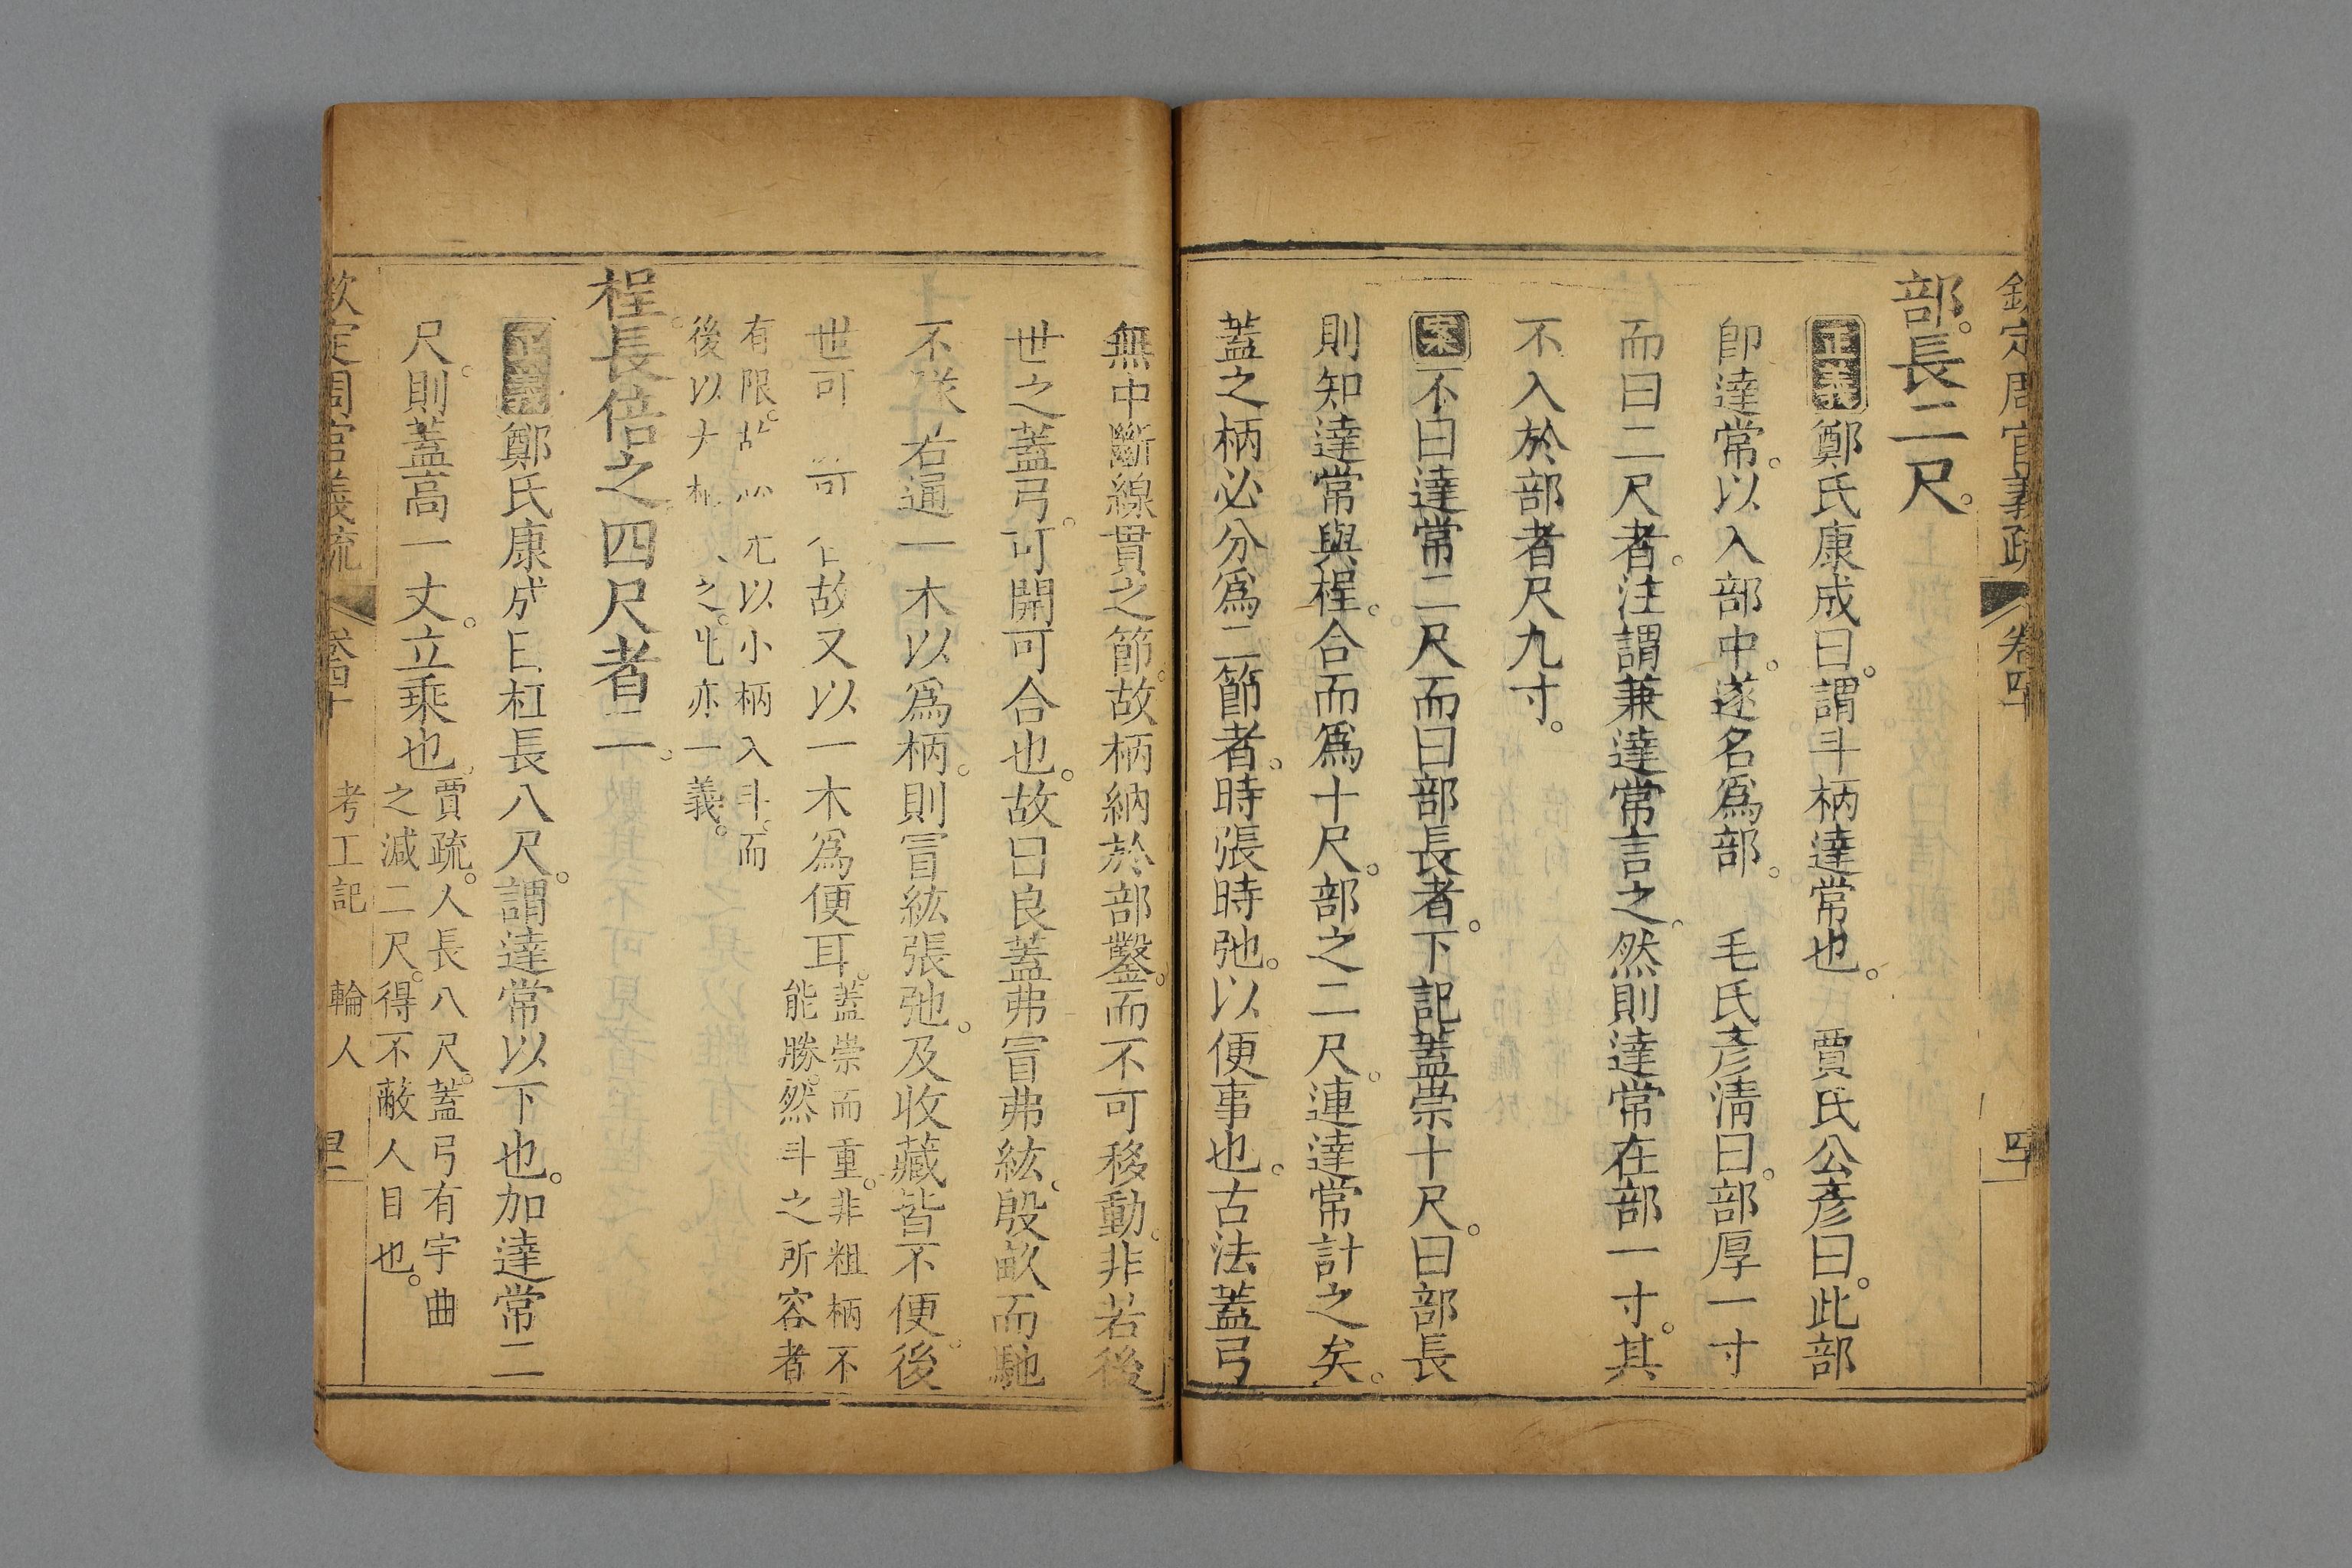 欽定周官義疏 卷四十
部。長二尺。
正義鄭氏康成曰。謂斗柄達常也。 賈氏公彥曰。此部
卽達常。以入部中。遂名爲部。 毛氏彥淸曰。部厚一寸
而曰二尺者。注謂兼達常言之。然則達常在部一寸。其
不入於部者尺九寸。
案不曰達常二尺而曰部長者。下記蓋崇十尺。曰部長
則知達常與桯。合而爲十尺。部之二尺。連達常計之矣。
蓋之柄必分爲二節者。時張時弛。以便事也。古法蓋弓
無中斷線貫之節。故柄納於部鑿。而不可移動。非若後
世之蓋弓。可開可合也。故曰良蓋弗冒弗紘。殷畝而馳
不隊 若通一木以爲柄。則冒紘張弛。及收藏皆不便。後
世可 可 故又以一木爲便耳。蓋崇而重。非粗柄不
能勝。然斗之所容者
有限。 以小柄入斗。而
後以大 之。此亦一義。
桯長倍之四尺者二。
正義鄭氏康成曰杠長八尺。謂達常以下也。加達常二
尺。則蓋高一丈。立乘也。賈疏。人長八尺。蓋弓有宇曲
之減二尺。得不蔽人目也。
欽定周官義疏 卷四十 考工記 輪人